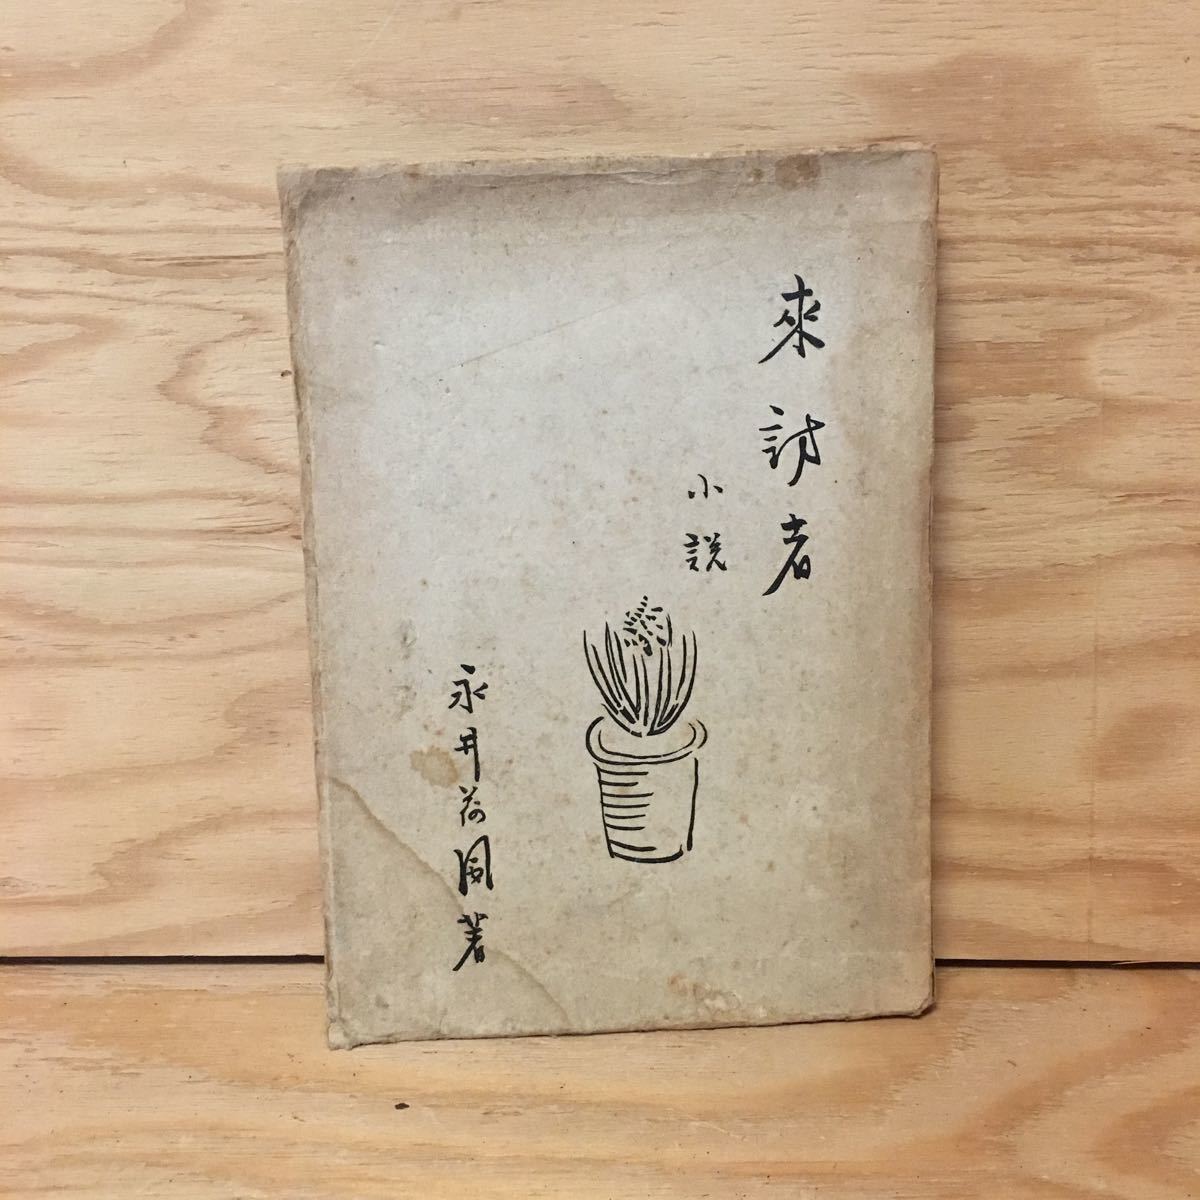 來訪者
小説
永井荷風著